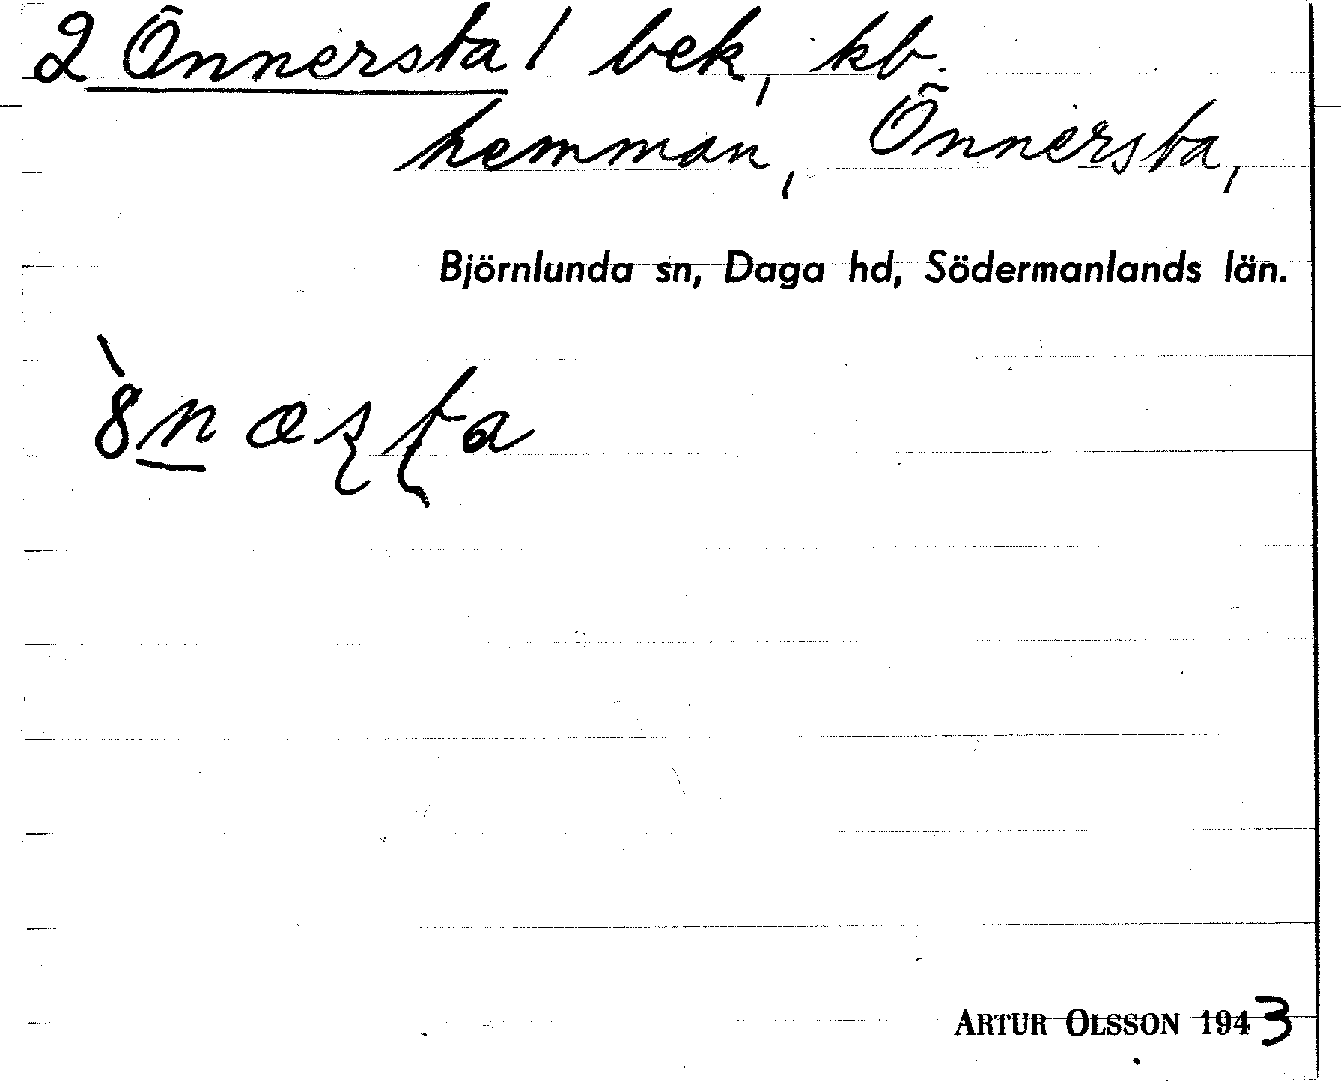 2 Önnersta / bek, kb.
hemman, Önnersta,
Björnlunda sn, Daga hd, Södermanlands län.
ARTUR OLSSON 1943